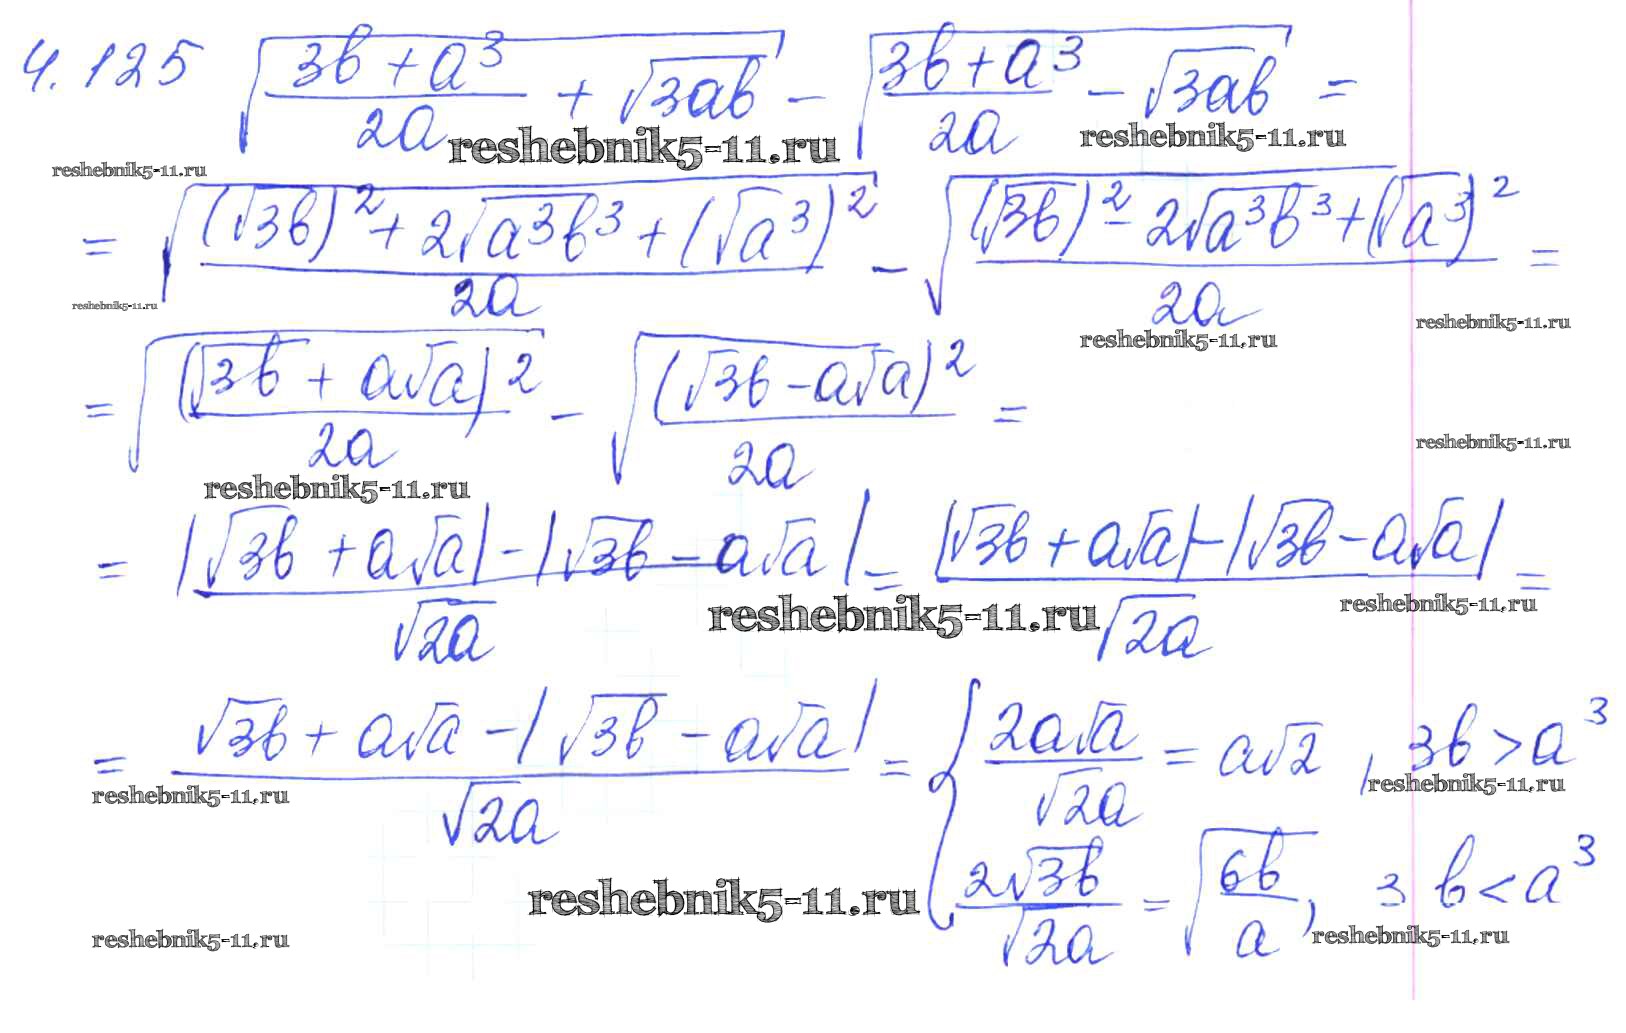 4.125 √((3b+a³)/(2a) + √(3ab)) − √((3b+a³)/(2a) − √(3ab)) =
reshebnik5-11.ru reshebnik5-11.ru reshebnik5-11.ru
= √(((√3b)² + 2√a³b³ + (√a³)²)/(2a)) − √(((√3b)² − 2√a³b³ + (√a³)²)/(2a)) =
reshebnik5-11.ru reshebnik5-11.ru reshebnik5-11.ru
= √((√3b + a√a)²/(2a)) − √((√3b − a√a)²/(2a)) =
reshebnik5-11.ru reshebnik5-11.ru
= (|√3b + a√a| − |√3b − a√a|)/√2a = (|√3b + a√a| − |√3b − a√a|)/√2a =
reshebnik5-11.ru reshebnik5-11.ru
= (√3b + a√a − |√3b − a√a|)/√2a = { 2a√a/√2a = a√2, 3b > a³
reshebnik5-11.ru reshebnik5-11.ru
2√3b/√2a = √(6b/a), 3b < a³
reshebnik5-11.ru reshebnik5-11.ru reshebnik5-11.ru